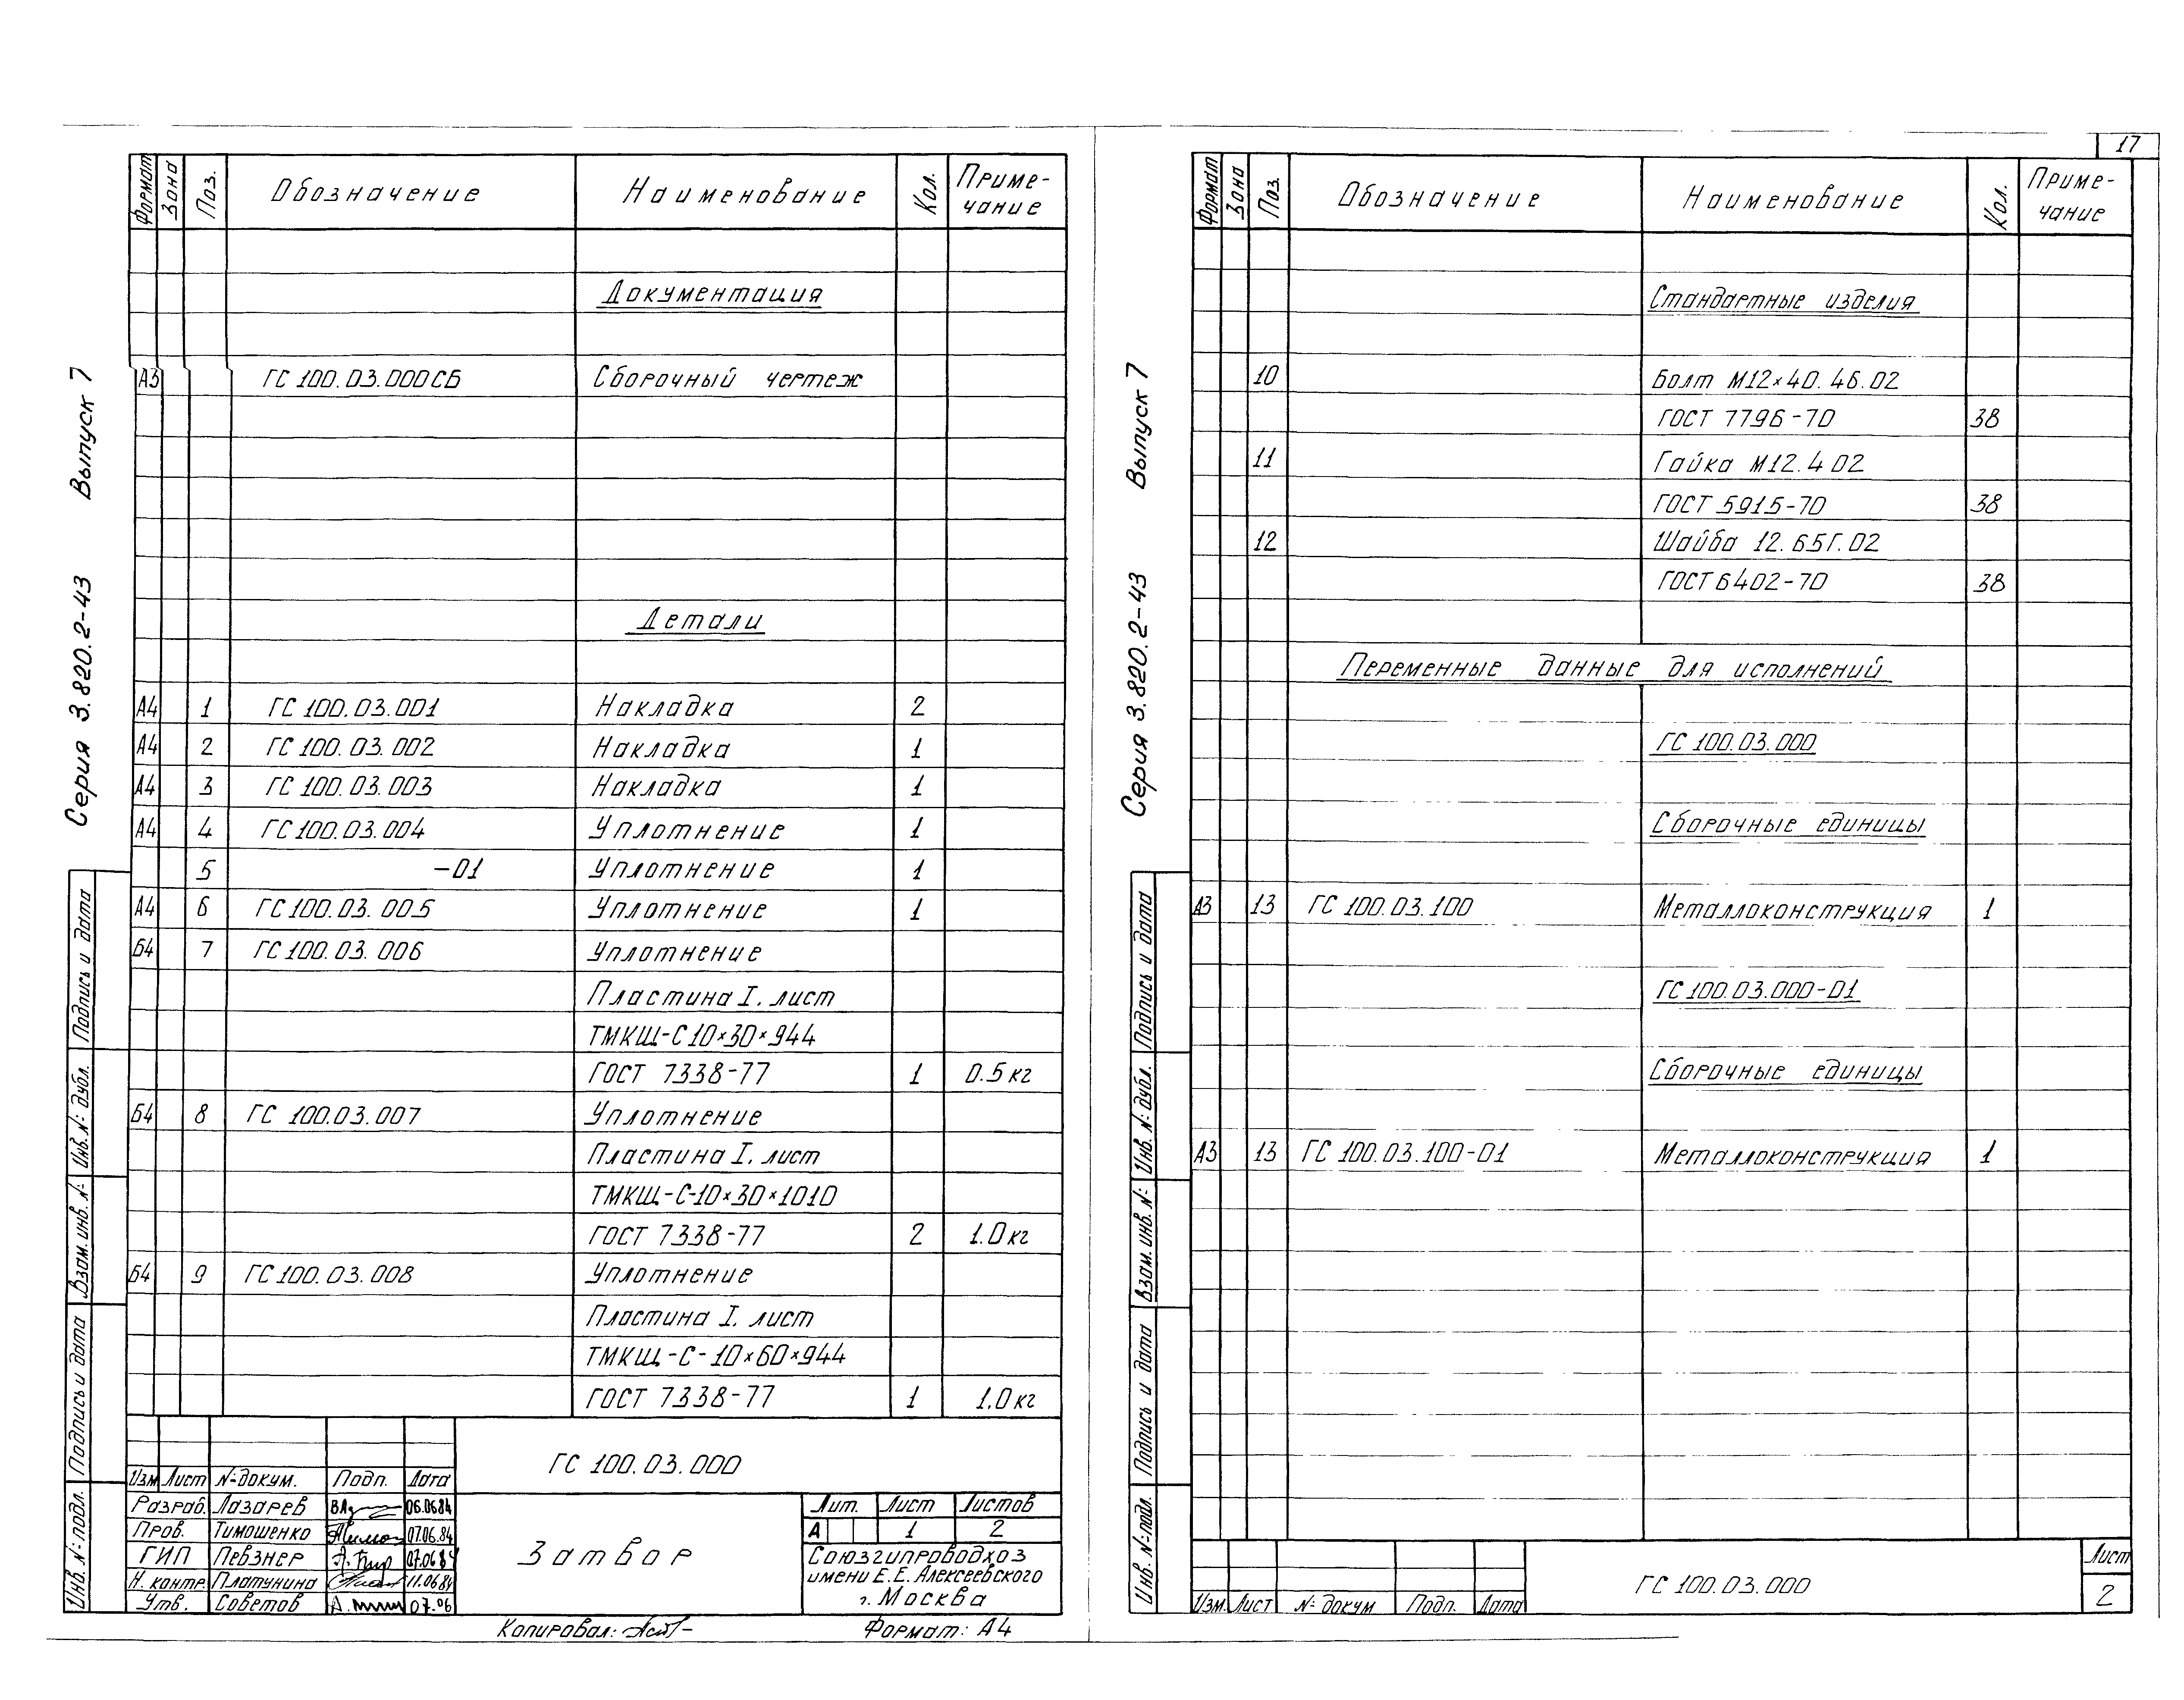 17
Серия 3.820.2-43 Выпуск 7
Формат Зона Поз. Обозначение Наименование Кол. Приме-чание
Документация
А3 ГС 100.03.000СБ Сборочный чертеж
Детали
А4 1 ГС 100.03.001 Накладка 2
А4 2 ГС 100.03.002 Накладка 1
А4 3 ГС 100.03.003 Накладка 1
А4 4 ГС 100.03.004 Уплотнение 1
5 -01 Уплотнение 1
А4 6 ГС 100.03.005 Уплотнение 1
Б4 7 ГС 100.03.006 Уплотнение
Пластина I. лист
ТМКЩ-С 10×30×944
ГОСТ 7338-77 1 0.5 кг
Б4 8 ГС 100.03.007 Уплотнение
Пластина I. лист
ТМКЩ-С-10×30×1010
ГОСТ 7338-77 2 1.0 кг
Б4 9 ГС 100.03.008 Уплотнение
Пластина I. лист
ТМКЩ-С-10×60×944
ГОСТ 7338-77 1 1.0 кг
Подпись и дата
Инв. №: дубл.
Взам. инв. №:
Подпись и дата
Инв. №: подл.
ГС 100.03.000
Изм Лист №: докум. Подп. Дата
Разраб. Лазарев 06.0684
Пров. Тимошенко 07.06.84
ГИП Певзнер 07.0684
Н. контр. Платунина 11.0684
Утв. Советов 07.06
Затвор
Лит. Лист Листов
А 1 2
Союзгипроводхоз
имени Е.Е. Алексеевского
г. Москва
Копировал:
Формат: А4
Серия 3.820.2-43 Выпуск 7
Формат Зона Поз Обозначение Наименование Кол. Приме-чание
Стандартные изделия
10 Болт М12×40.46.02
ГОСТ 7796-70 38
11 Гайка М12.4 02
ГОСТ 5915-70 38
12 Шайба 12.65Г.02
ГОСТ 6402-70 38
Переменные данные для исполнений
ГС 100.03.000
Сборочные единицы
А3 13 ГС 100.03.100 Металлоконструкция 1
ГС 100.03.000-01
Сборочные единицы
А3 13 ГС 100.03.100-01 Металлоконструкция 1
Подпись и дата
Инв. №: дубл.
Взам. инв. №:
Подпись и дата
Инв. №: подл.
Изм Лист №: докум Подп. Дата
ГС 100.03.000
Лист
2